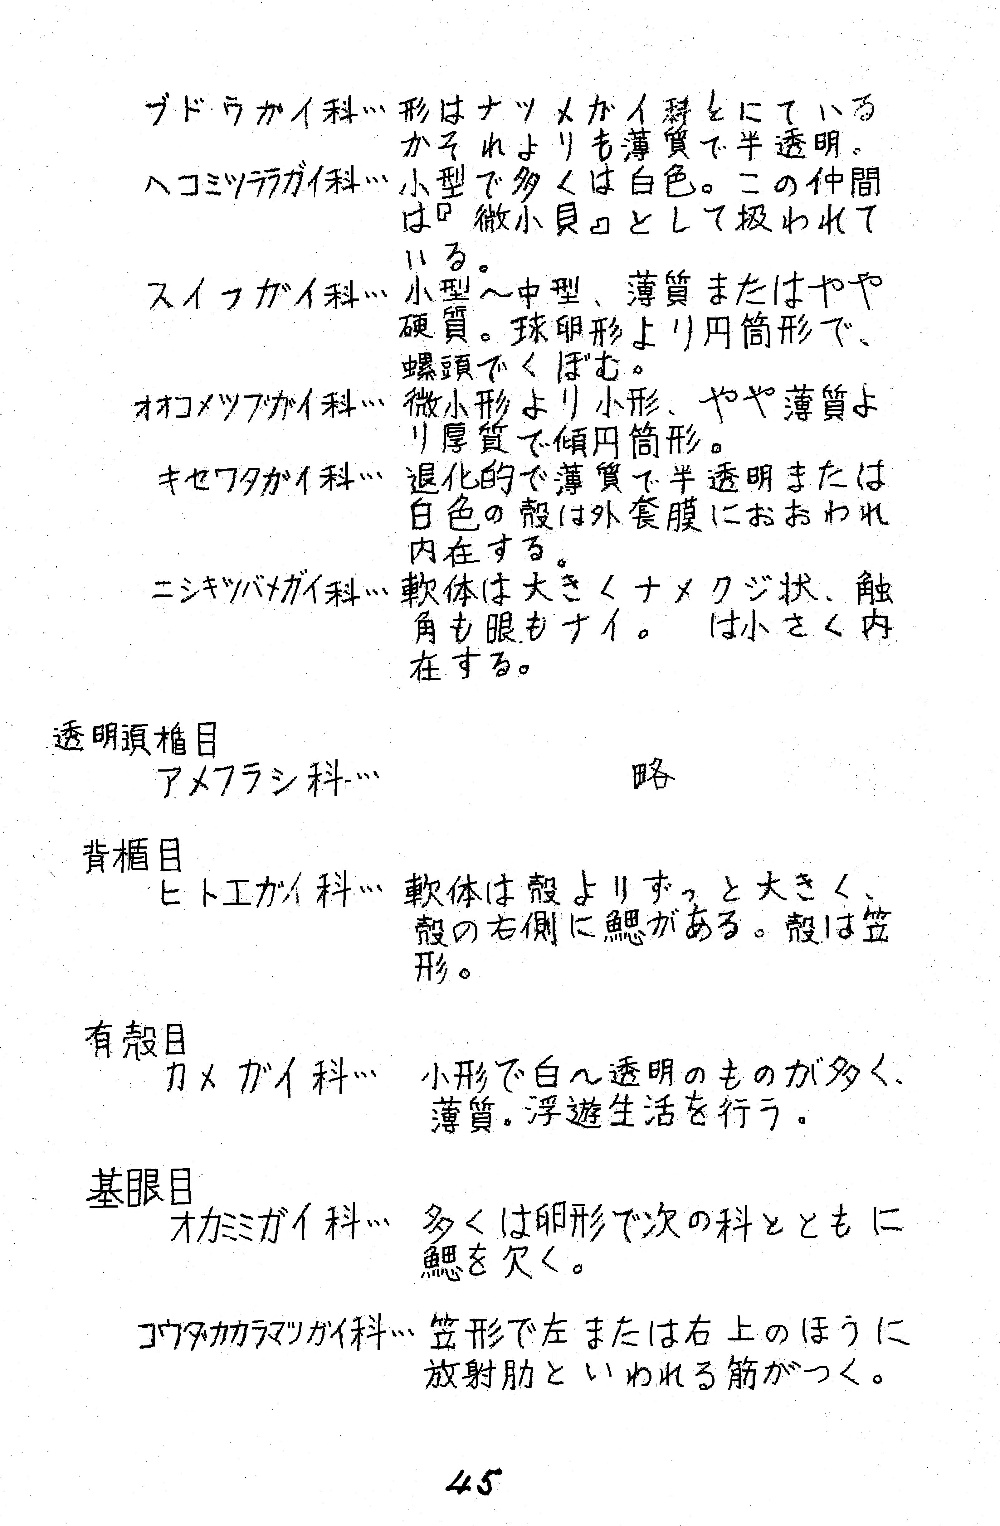 ブドウガイ科… 形はナツメガイ科とにている
かそれよりも薄質で半透明。
ヘコミツララガイ科… 小型で多くは白色。この仲間
は『微小貝』として扱われて
いる。
スイフガイ科… 小型〜中型、薄質またはやや
硬質。球卵形より円筒形で、
螺頭でくぼむ。
オオコメツブガイ科… 微小形より小形、やや薄質よ
り厚質で傾円筒形。
キセワタガイ科… 退化的で薄質で半透明または
白色の殻は外套膜におおわれ
内在する。
ニシキツバメガイ科… 軟体は大きくナメクジ状、触
角も眼もナイ。 は小さく内
在する。
透明頭楯目
アメフラシ科… 略
背楯目
ヒトエガイ科… 軟体は殻よりずっと大きく、
殻の右側に鰓がある。殻は笠
形。
有殻目
カメガイ科… 小形で白〜透明のものが多く、
薄質。浮遊生活を行う。
基眼目
オカミミガイ科… 多くは卵形で次の科とともに
鰓を欠く。
コウダカカラマツガイ科… 笠形で左または右上のほうに
放射肋といわれる筋がつく。
45